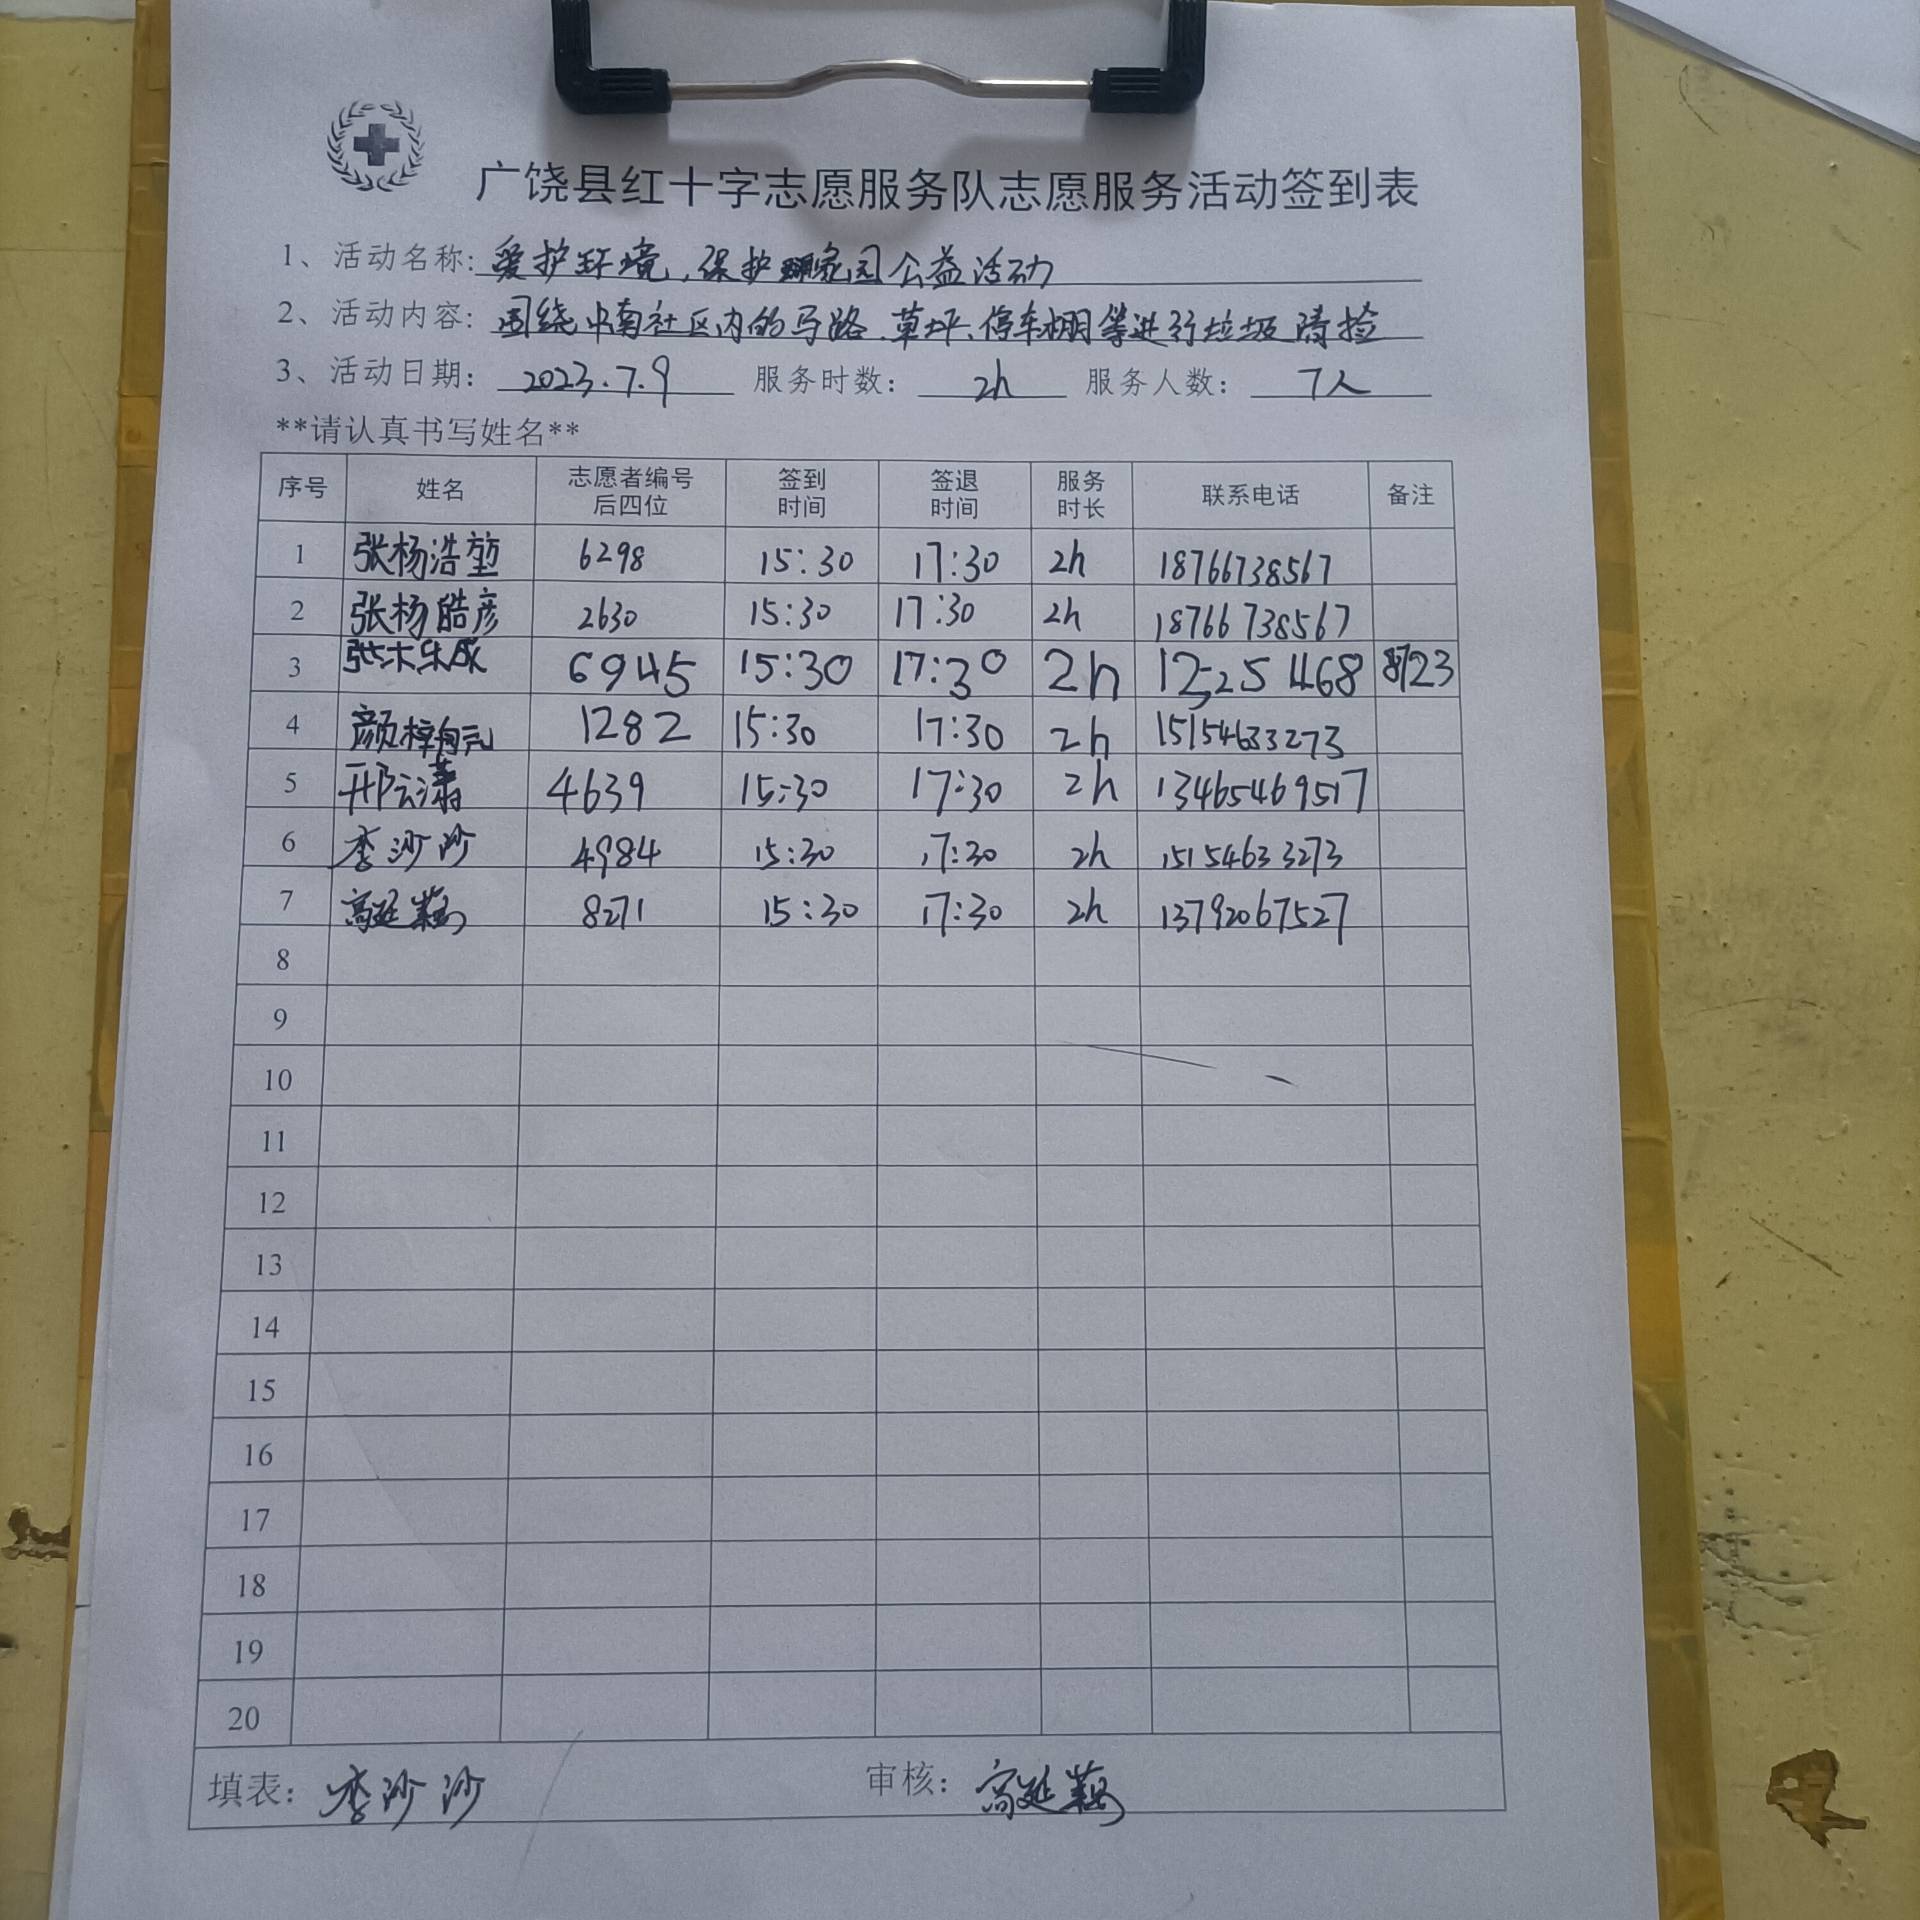 广饶县红十字志愿服务队志愿服务活动签到表
1、活动名称: 爱护环境、保护家园公益活动
2、活动内容: 围绕中南社区内的马路、草坪、停车棚等进行垃圾清捡
3、活动日期: 2023.7.9 服务时数: 2h 服务人数: 7人
**请认真书写姓名**
序号 姓名 志愿者编号后四位 签到时间 签退时间 服务时长 联系电话 备注
1 张杨浩堃 6298 15:30 17:30 2h 18766738567
2 张杨皓彦 2630 15:30 17:30 2h 18766738567
3 6945 15:30 17:30 2h
4 颜梓 1282 15:30 17:30 2h 15154633273
5 邢云潇 4639 15:30 17:30 2h 13465469517
6 李沙沙 4984 15:30 17:30 2h 15154633273
7 高延 8271 15:30 17:30 2h 13792067527
8
9
10
11
12
13
14
15
16
17
18
19
20
填表: 李沙沙 审核: 高延